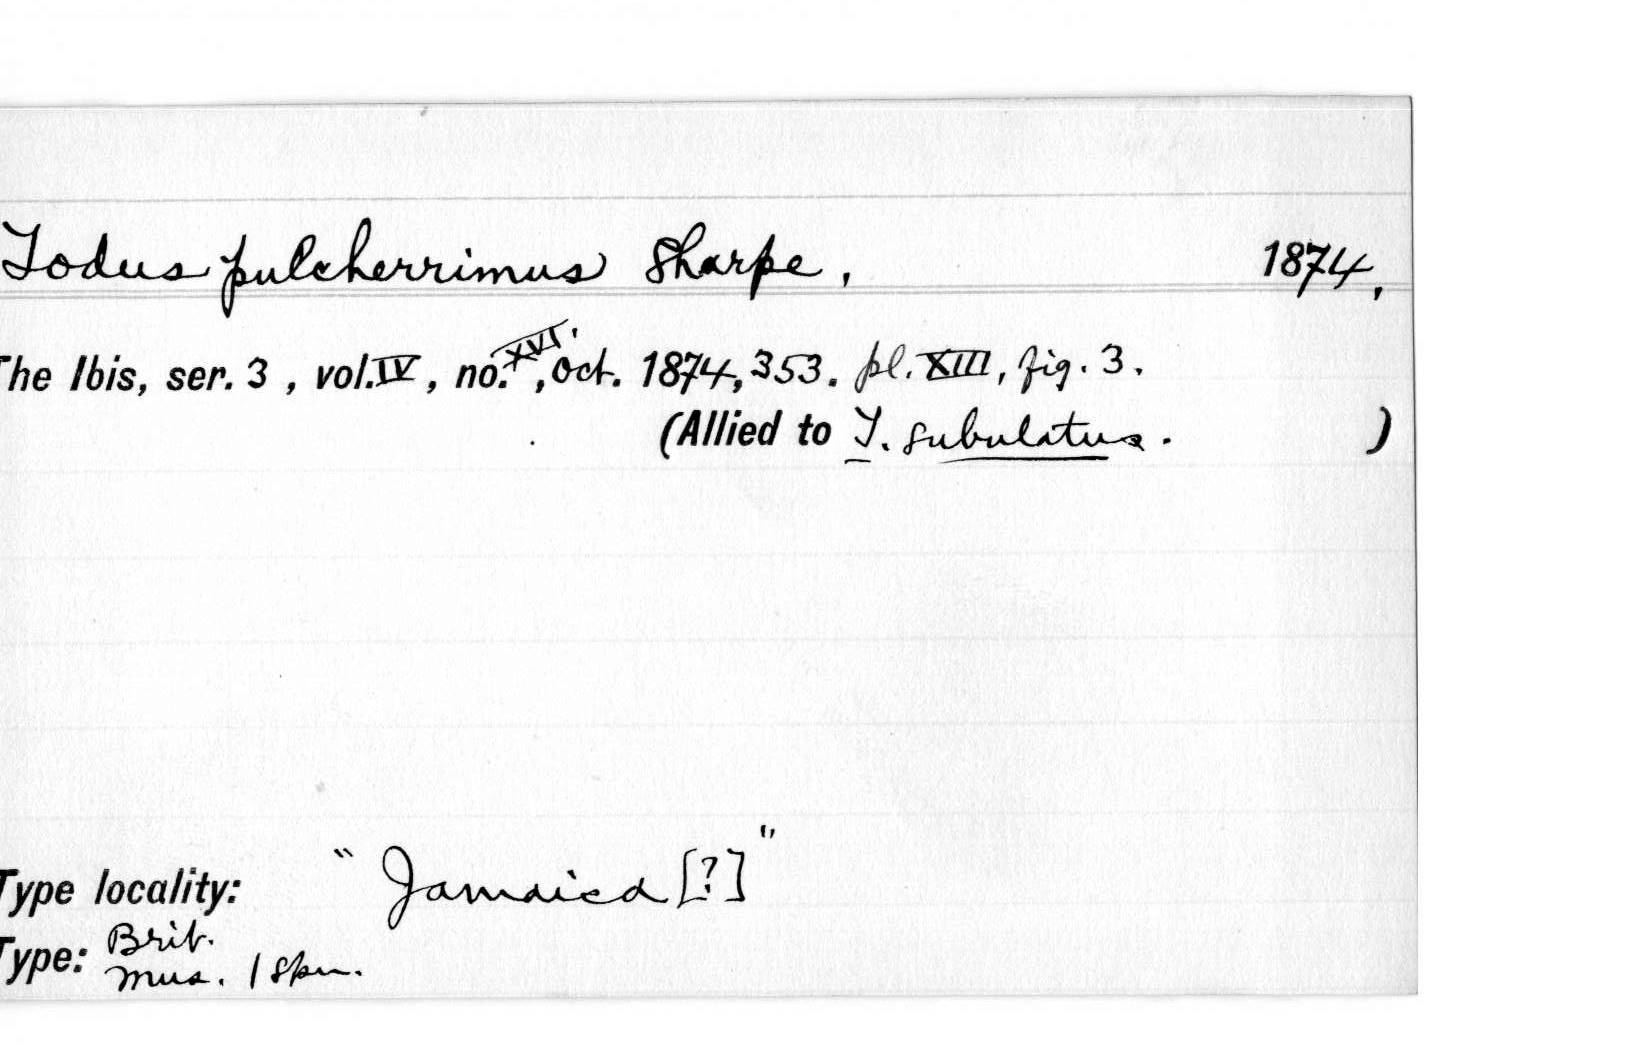 Todus pulcherrimus Sharpe, 1874,
The Ibis, ser. 3, vol. IV, no. XVI, Oct. 1874, 353. pl. XIII, fig. 3.
(Allied to T. subulatus. )
Type locality: "Jamaica [?]"
Type: Brit.
Mus. 1 spm.